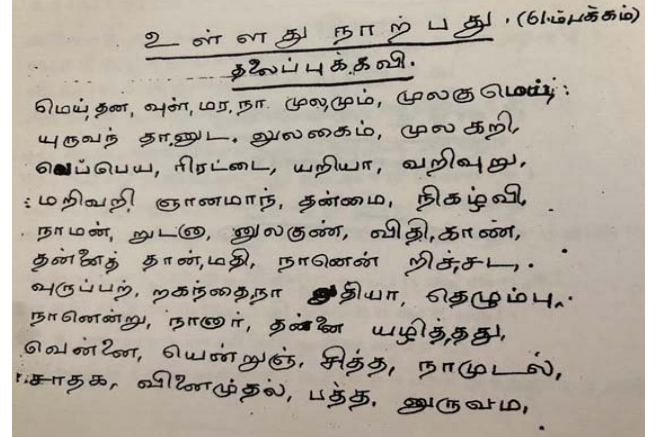 உள்ளது நாற்பது. (61ம்பக்கம்)
தலைப்புக்கவி.
மெய், தன, வுள், மர, நா. முமூமும், முலகு மெய், :
யுருவந் தாணுட. னுலகைம், முல கறி,
வெப்பெய, ரிரட்டை, யறியா, வறிவுறு,
மறிவறி ஞானமாந், தன்மை, நிகழ்வி,
நாமன், றுடனா, னுலகுண், விதி, காண்,
தன்னைத் தான், மதி, நானென் றிச், சட,
வுருப்பற், றகந்தைநா னுதியா, தெழும்பு,
நானென்று, நானார், தன்னை யழித், தது,
வென்னை, யென்றுஞ், சித்த, நாமுடல்,
சாதக, வினைமுதல், பத்த, னுருவம,